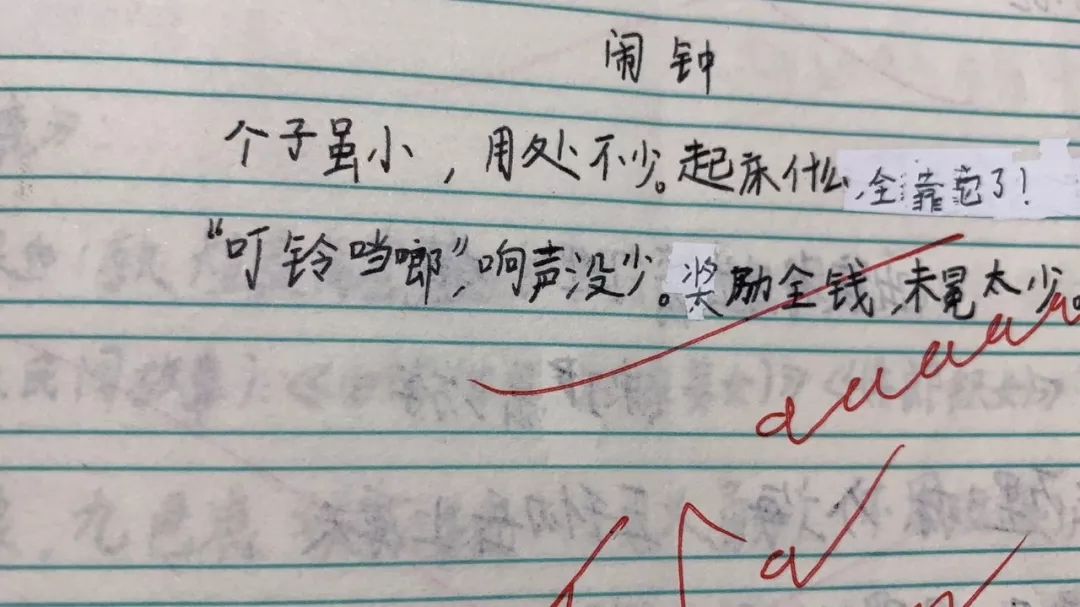 闹钟
个子虽小，用处不少。起床什么，全靠它了！
“叮铃当啷”，响声没少。奖励全钱，未冕太少。
a u u u u
a